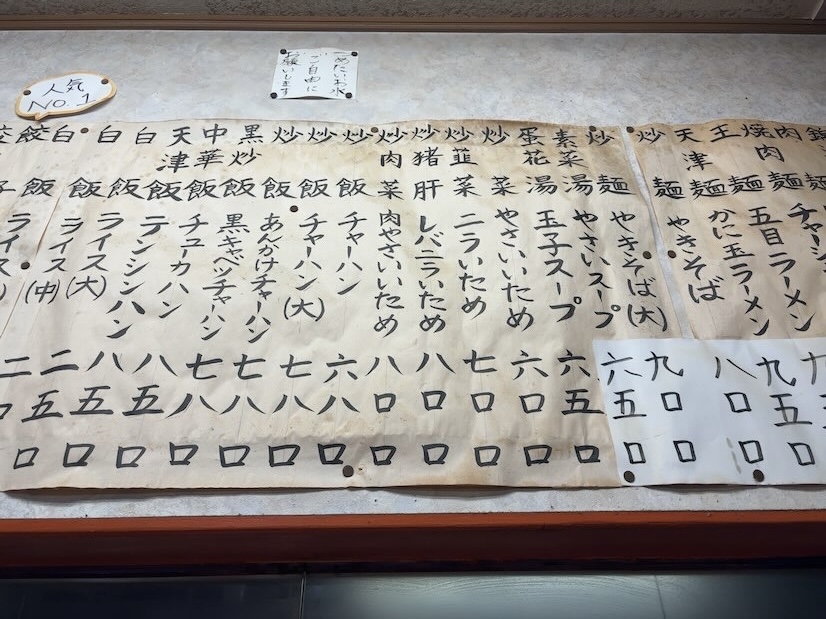 つめたいお水
ご自由に
お願いします
人気
NO.1
肉麺 チャーシューメン
焼肉麺 五目ラーメン 九五〇
王麺 かに玉ラーメン 八〇〇
天津麺 やきそば
炒麺 やきそば(大) 九〇〇
炒麺 やさいスープ 六五〇
素菜湯 玉子スープ 六五〇
蛋花湯 やさいいため 六〇〇
炒菜 ニラいため 七〇〇
炒韮菜 レバニラいため 八〇〇
炒猪肝 肉やさいいため 八〇〇
炒肉菜
炒飯 チャーハン 六八〇
炒飯 チャーハン(大) 七八〇
炒飯 あんかけチャーハン 七八〇
黒炒飯 黒キャベツチャーハン 七八〇
中華飯 チューカハン 八五〇
天津飯 テンシンハン 八五〇
白飯 ライス(大) 二五〇
白飯 ライス(中)
白飯 ライス